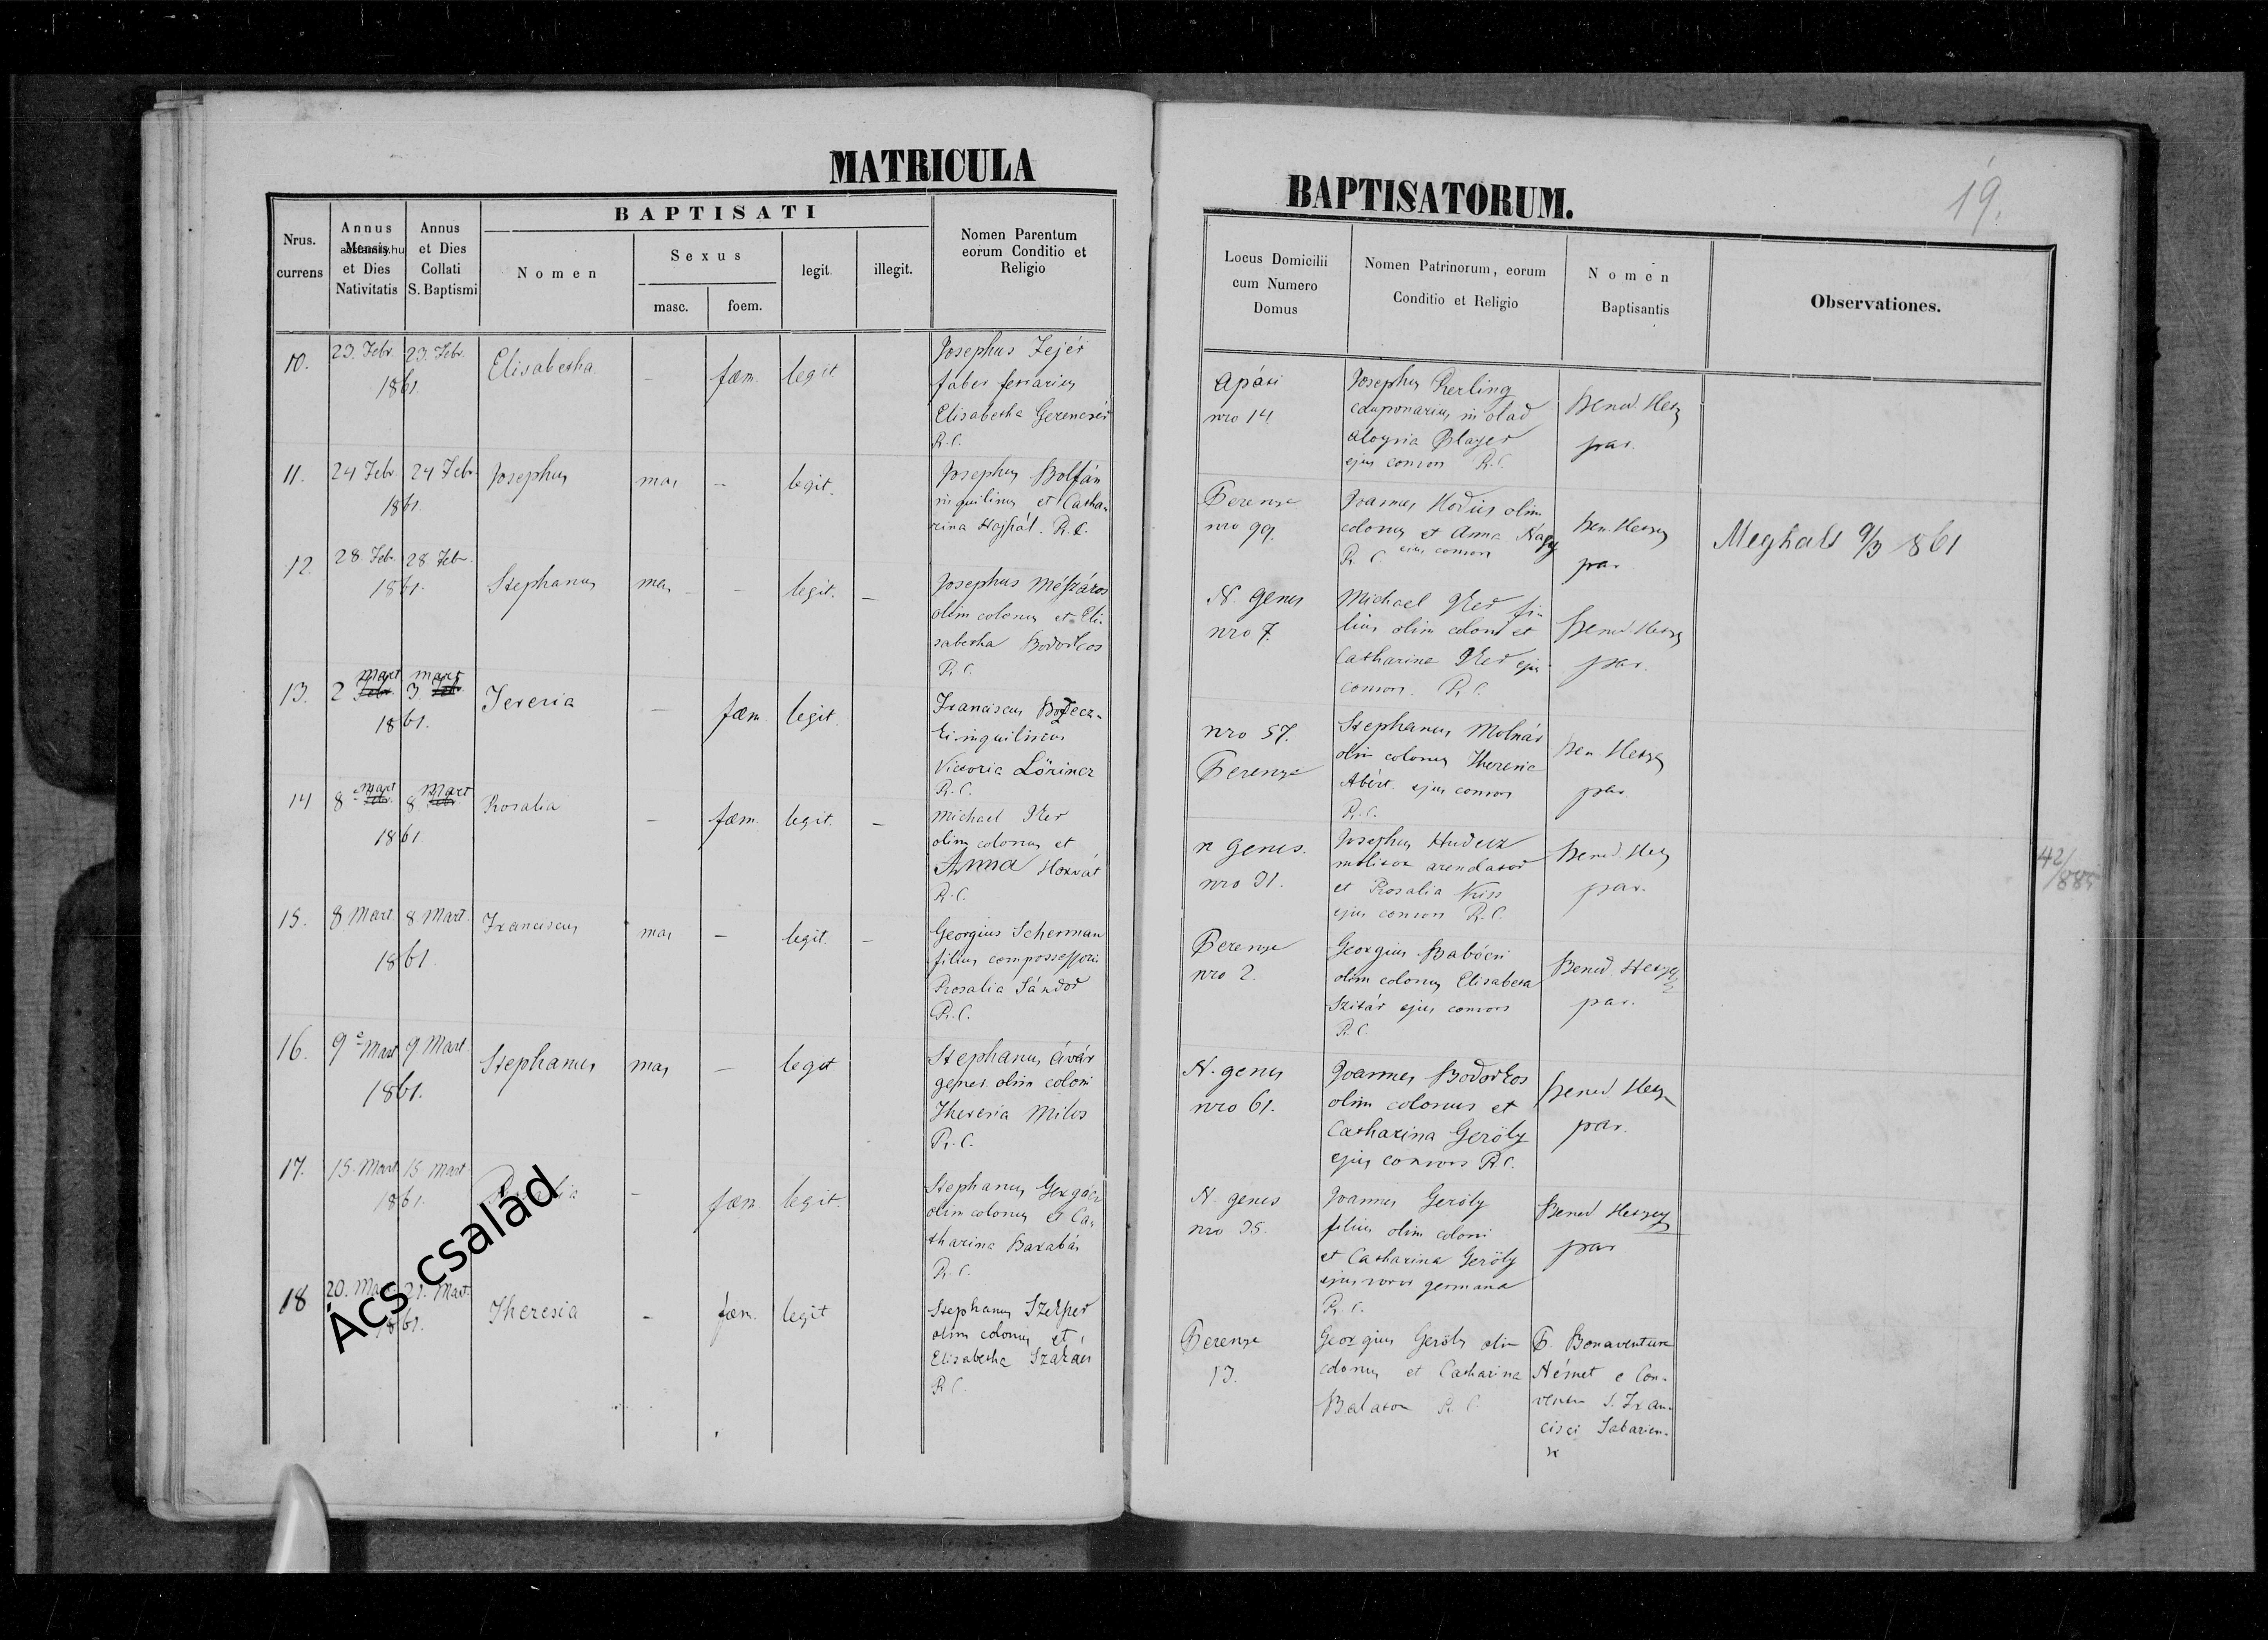 MATRICULA
BAPTISATI
Nrus. currens
Annus Mensis et Dies Nativitatis
Annus et Dies Collati S. Baptismi
Nomen
Sexus
masc.
foem.
legit.
illegit.
Nomen Parentum eorum Conditio et Religio
10. 23. Febr. 1861 23. Febr. Elisabetha – fœm. legit
Josephus Fejér
faber ferrarius
Elisabetha Gerencsér
R.C.
11. 24 Febr 1861. 24 Febr. Josephus mas – legit.
Josephus Bolfán
inquilinus et Catha-
rina Hajpál. R.C.
12. 28 Feb. 1861. 28 Febr. Stephanus mas – – legit. –
Josephus Mészáros
olim colonus et Eli-
sabetha Bodorkos
R.C.
13. 2 Mart 1861. 3. Mart Teresia – fœm legit.
Franciscus
inquilinus
Victoria Lörincz
R.C.
14 8 Mart 1861 8 Mart Rosalia – fœm. legit. –
Michael
olim colonus et
Anna Horvát
R.C.
15. 8 Mart. 1861 8 Mart. Franciscus mas – legit. –
Georgius Scherman
filius compossessoris
Rosalia Sándor
R.C.
16. 9 Mart 1861. 9 Mart. Stephanus mas – legit
Stephanus Ávár
gener olim coloni
Theresia Milos
R.C.
17. 15. Mart 1861. 15 Mart – fœm legit.
Stephanus Gergácz
olim colonus et Ca-
tharina Barabás
R.C.
18 20. 1861. 21. Mart. Theresia – fœm. legit
Stephanus
olim colonus et
Elisabetha Szakács
R.C.
Ács család
BAPTISATORUM.
19.
Locus Domicilii cum Numero Domus
Nomen Patrinorum, eorum Conditio et Religio
Nomen Baptisantis
Observationes.
Apáti
nro 14.
Josephus
cauponarius in olad
Aloysia
ejus consors R.C.
Bened. Hetz
par.
Perenye
nro 99.
Joannes olim
colonus et Anna Nagy
R.C. ejus consors
Ben. Hetzey
par
Meghalt 9/3 861
N. Genes
nro 7.
Michael fi-
lius olim coloni et
Catharina ejus
consors. R.C.
Bened Hetzey
par.
nro 57.
Perenye
Stephanus Molnár
olim colonus Theresia
ejus consors
R.C.
Ben. Hetzey
par.
n Genes.
nro 31.
Josephus Hudecz
molitor arendator
et Rosalia Kiss
ejus consors R.C.
Bened Hetz
par.
42/885
Perenye
nro 2.
Georgius Babócsi
olim colonus Elisabeta
Szitár ejus consors
R.C.
Bened. Hetzey
par.
N. genes
nro 61.
Joannes Bodorkos
olim colonus et
Catharina Geröly
ejus consors R.C.
Bened Hetz
par.
N. genes
nro 35.
Joannes Geröly
filius olim coloni
et Catharina Geröly
ejus soror germana
R.C.
Bened Hetzey
par
Perenye
13.
Georgius Geröly olim
colonus et Catharina
Balaton R.C.
P. Bonaventura
Német e Con-
ventu S. Fran-
cisci Sabarien-
se